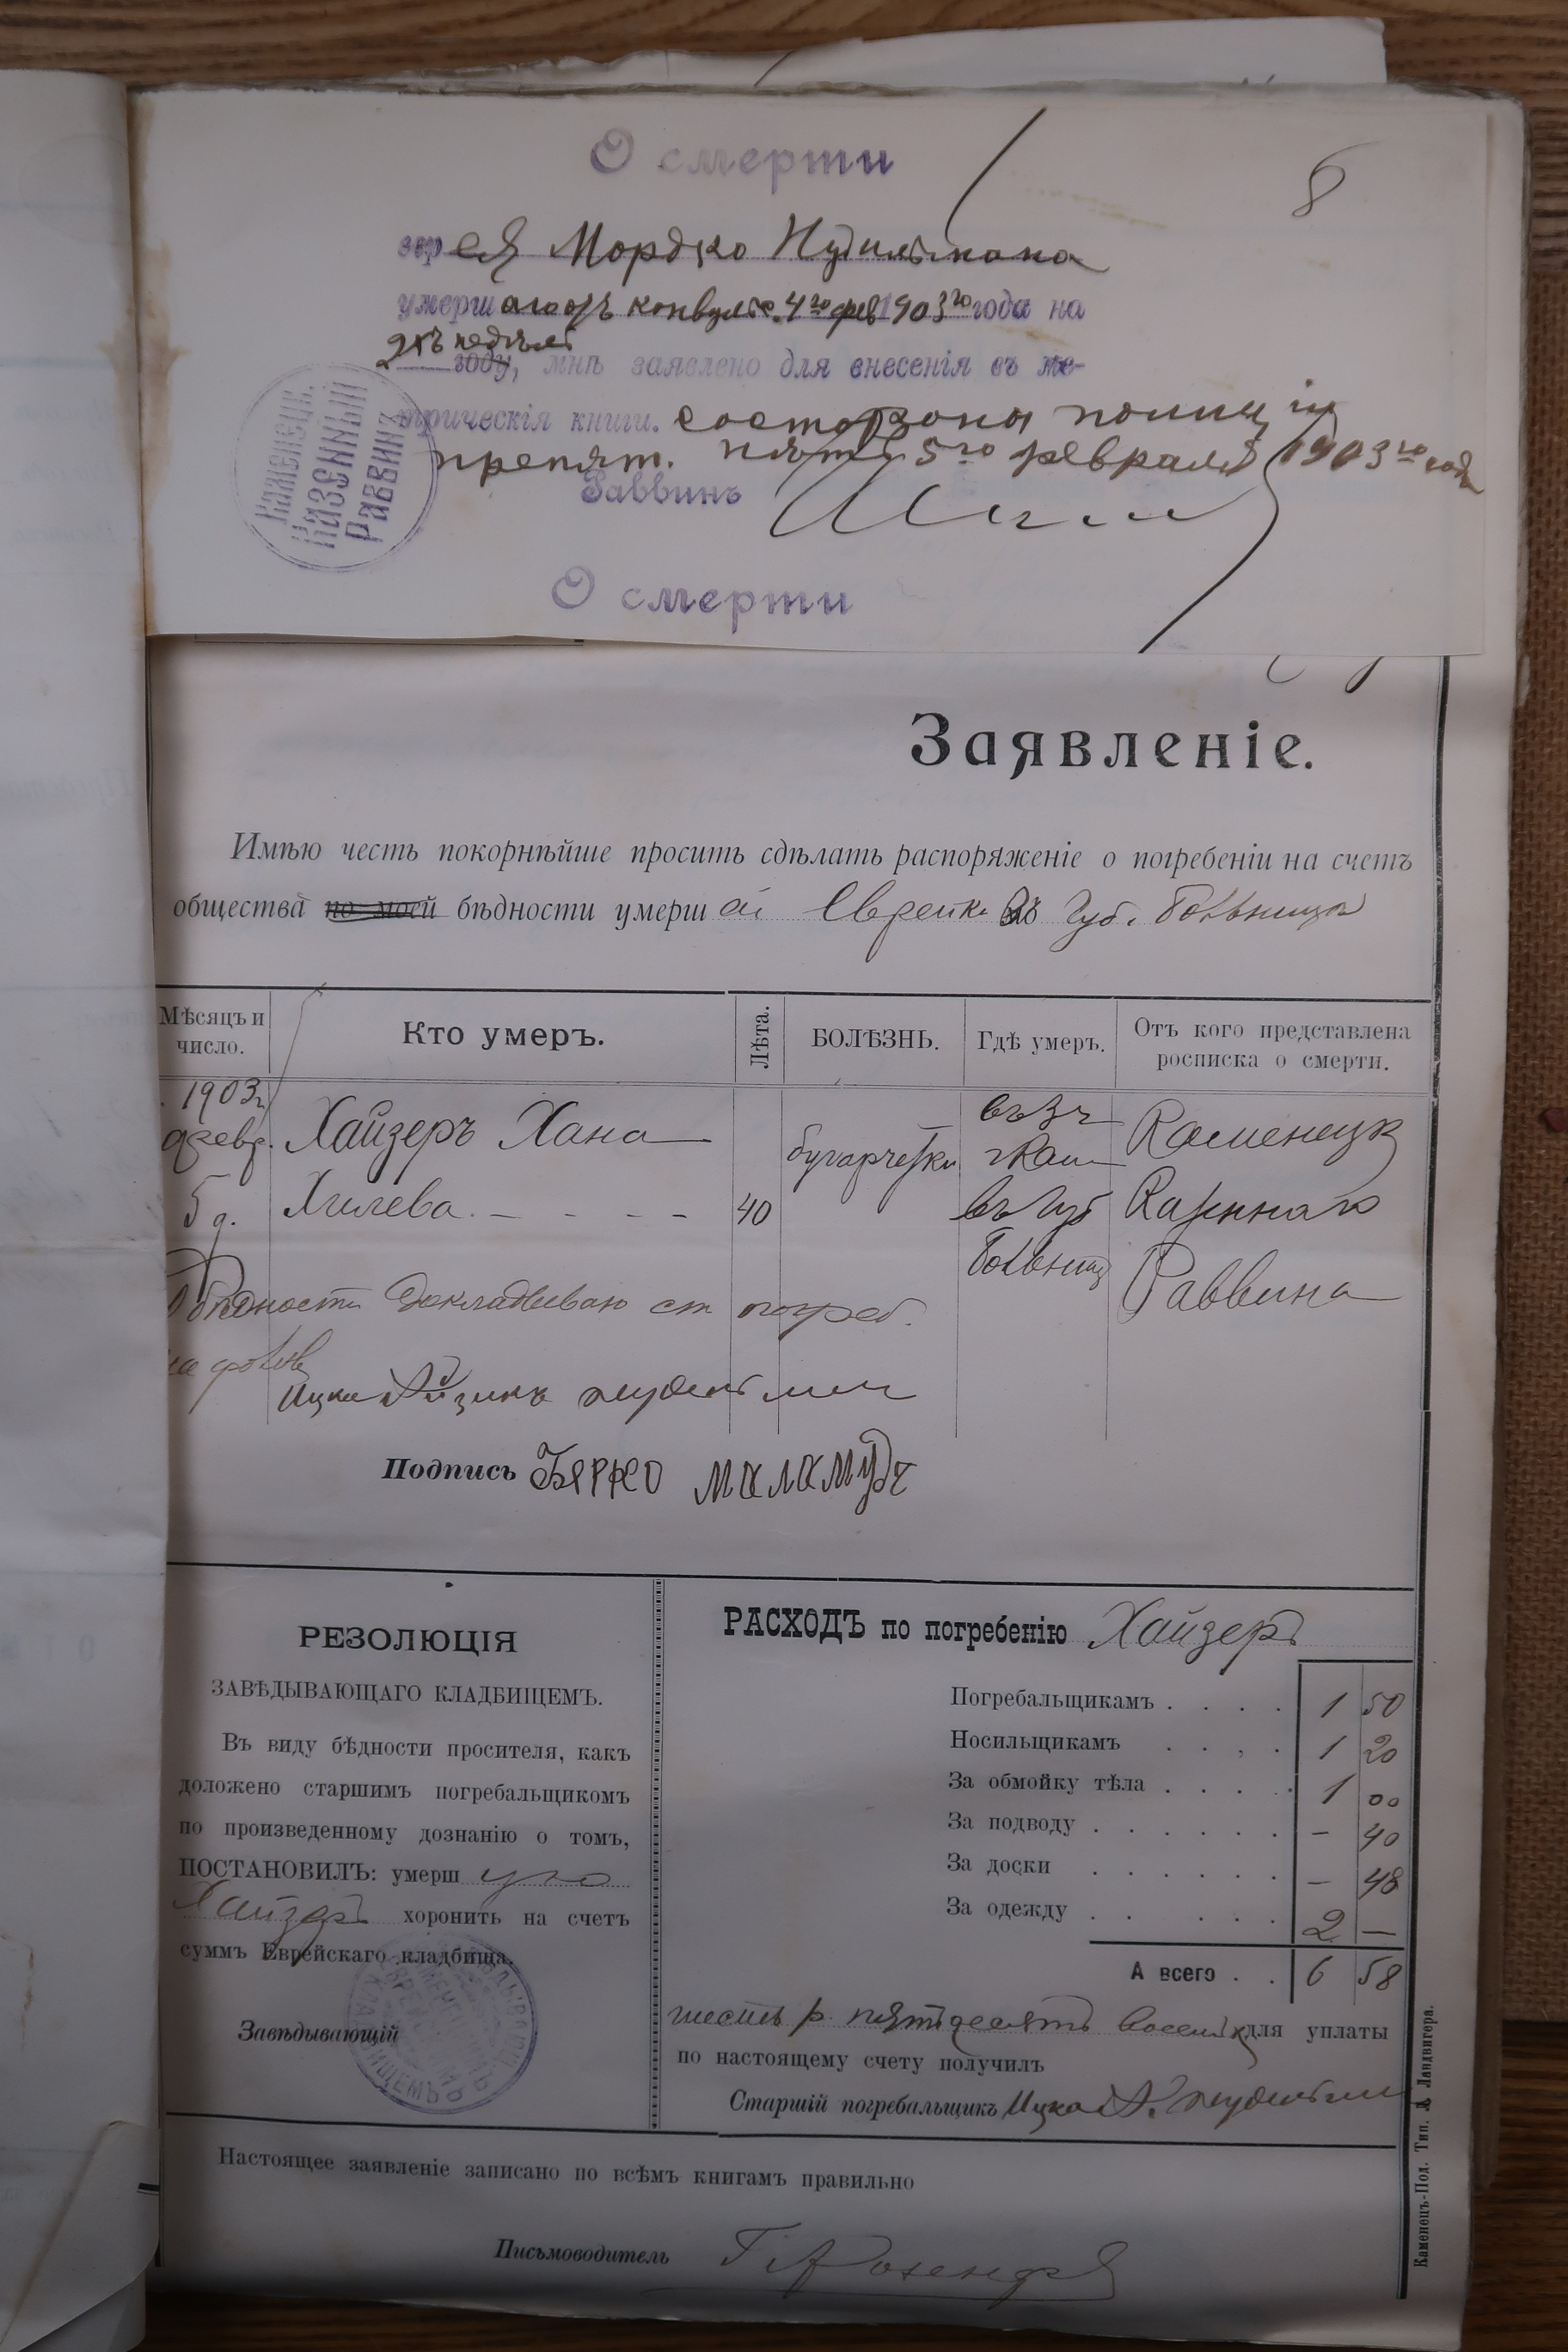 О смерти
8
евр ея Мордко Нудильмана
умерш отъ конвульс. 4го фев 1903го года на
2хъ недѣли
году, мнѣ заявлено для внесенія въ ме-
трическія книги. со стороны полиціи
препят. нѣтъ 5го февраля 1903го года
Раввинъ
КАМЕНЕЦЪ. КАЗЕННЫЙ РАВВИНЪ
О смерти
Заявленіе.
Имѣю честь покорнѣйше просить сдѣлать распоряженіе о погребеніи на счетъ
общества по моей бѣдности умерш ей Еврейки въ Губ. Больницы
Мѣсяцъ и число. Кто умеръ. Лѣта. БОЛѢЗНЬ. Гдѣ умеръ. Отъ кого представлена росписка о смерти.
1903г. въ
февр. Хайзеръ Хана бугорчатки Каменецк
5 д. Хилева. - - - - 40 въ Губ Казеннаго
Больниц Раввина
О бѣдности докладываю ст погреб.
Ицко Айзикъ Нудельман
Подпись Берко Маламудъ
РЕЗОЛЮЦІЯ
ЗАВѢДЫВАЮЩАГО КЛАДБИЩЕМЪ.
Въ виду бѣдности просителя, какъ
доложено старшимъ погребальщикомъ
по произведенному дознанію о томъ,
ПОСТАНОВИЛЪ: умерш ую
Хайзеръ хоронить на счетъ
суммъ Еврейскаго кладбища.
Завѣдывающій
РАСХОДЪ по погребенію Хайзеръ
Погребальщикамъ . . . . 1 50
Носильщикамъ . . . . 1 20
За обмойку тѣла . . . . 1 00
За подводу . . . . . . - 40
За доски . . . . . . - 48
За одежду . . . . . . 2 -
А всего . . 6 58
шесть р. пятьдесятъ восемь к для уплаты
по настоящему счету получилъ
Старшій погребальщикъ Ицко А. Нудельман
Настоящее заявленіе записано по всѣмъ книгамъ правильно
Письмоводитель
Каменецъ-Под. Тип. Л. Ландвигера.